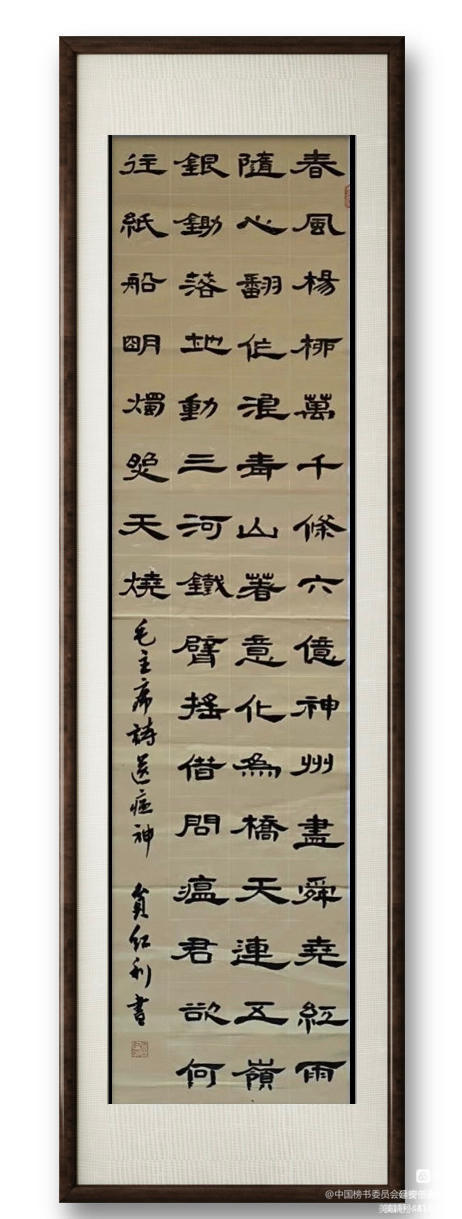 春風楊柳萬千條六億神州盡舜堯紅雨
隨心翻作浪青山著意化為橋天連五嶺
銀鋤落地動三河鐵臂搖借問瘟君欲何
往紙船明燭照天燒
毛主席詩送瘟神 貟紅利書
@中国榜书委员会